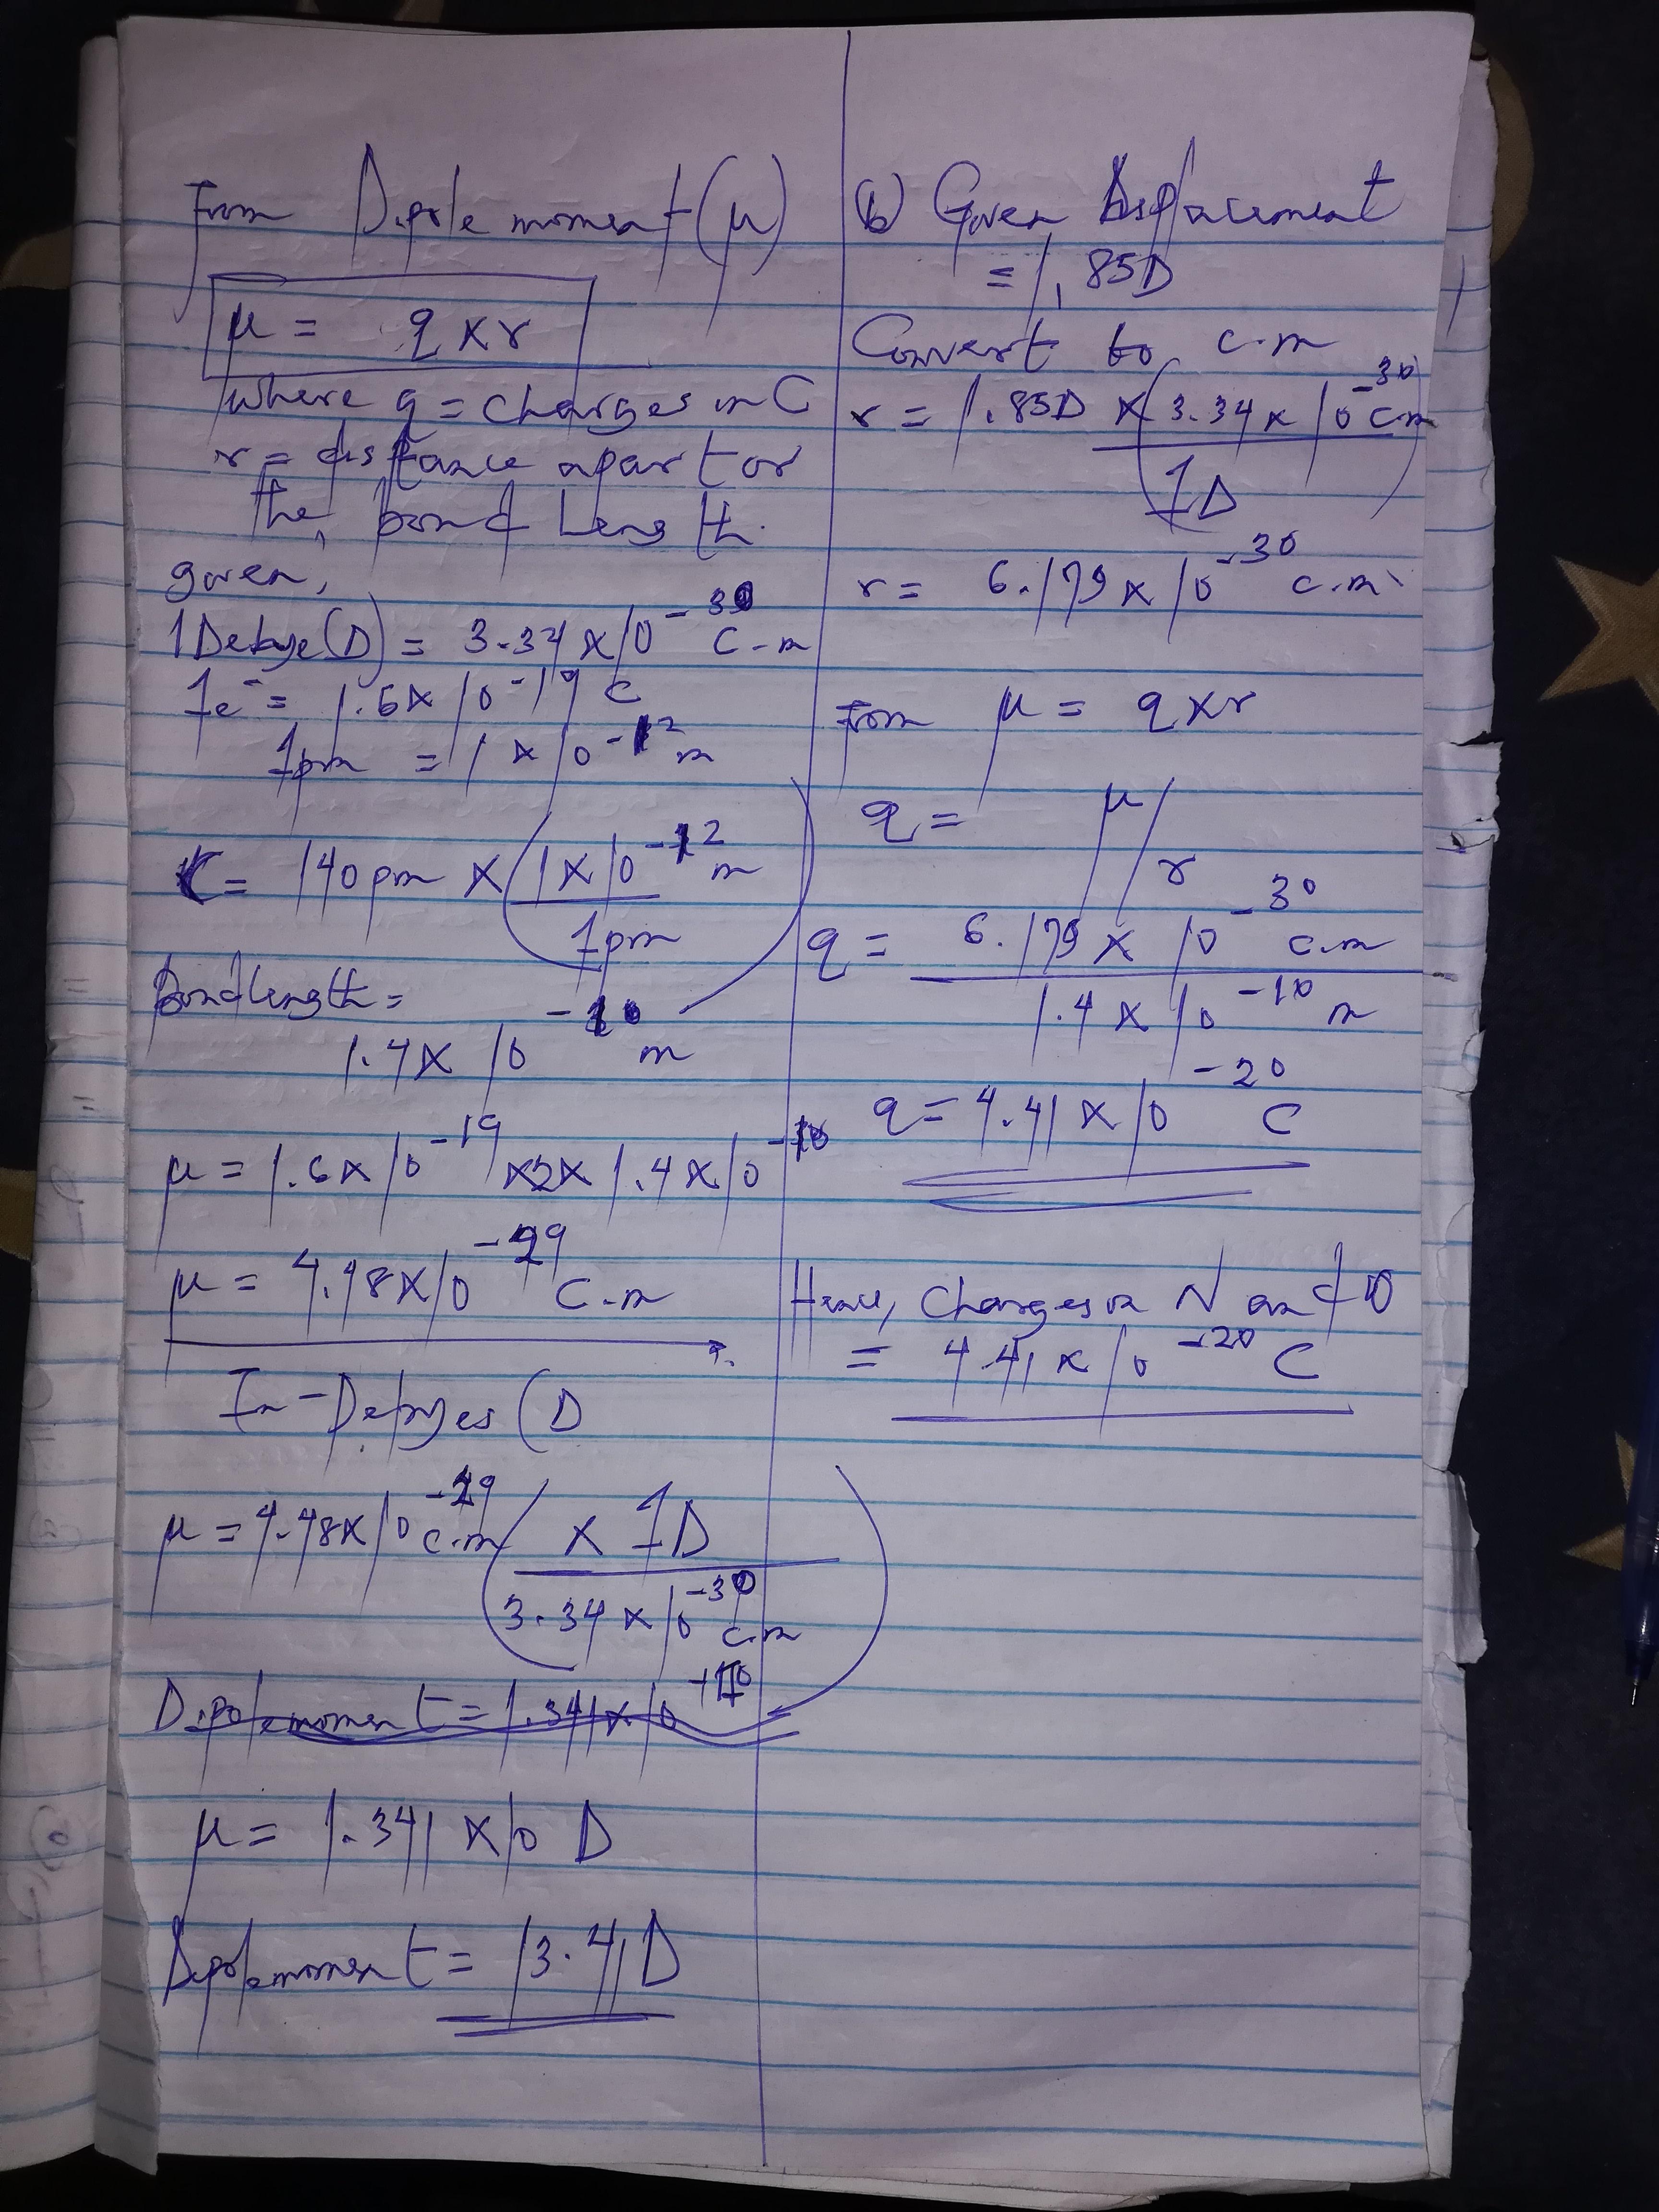 From Dipole moment (μ)
μ = q x r
where q = charges in C
r = distance apart or
the, bond Length.
given,
1 Debye (D) = 3.34 x 10^-30 C-m
1e^- = 1.6x10^-19 C
1pm = 1 x 10^-12 m
= 140 pm x (1x10^-12 m / 1pm)
Bond length =
1.4x 10^-10 m
μ = 1.6x10^-19 x2x 1.4x10^-10
μ = 4.48x10^-29 C-m
In-Debyes (D
μ = 4.48x10^-29 c.m (x 1D / 3.34 x 10^-30 c.m)
μ = 1.341 x10 D
Dipole moment = 13.41D
(b) Given Displacement
= 1.85D
Convert to c.m
r = 1.85D x (3.34 x 10^-30 c.m / 1D)
r = 6.179 x 10^-30 c.m
From μ = q x r
q = μ/r
q = 6.179 x 10^-30 c.m / 1.4 x 10^-10 m
q = 4.41 x 10^-20 C
Hence, charges on N and O
= 4.41 x 10^-20 C